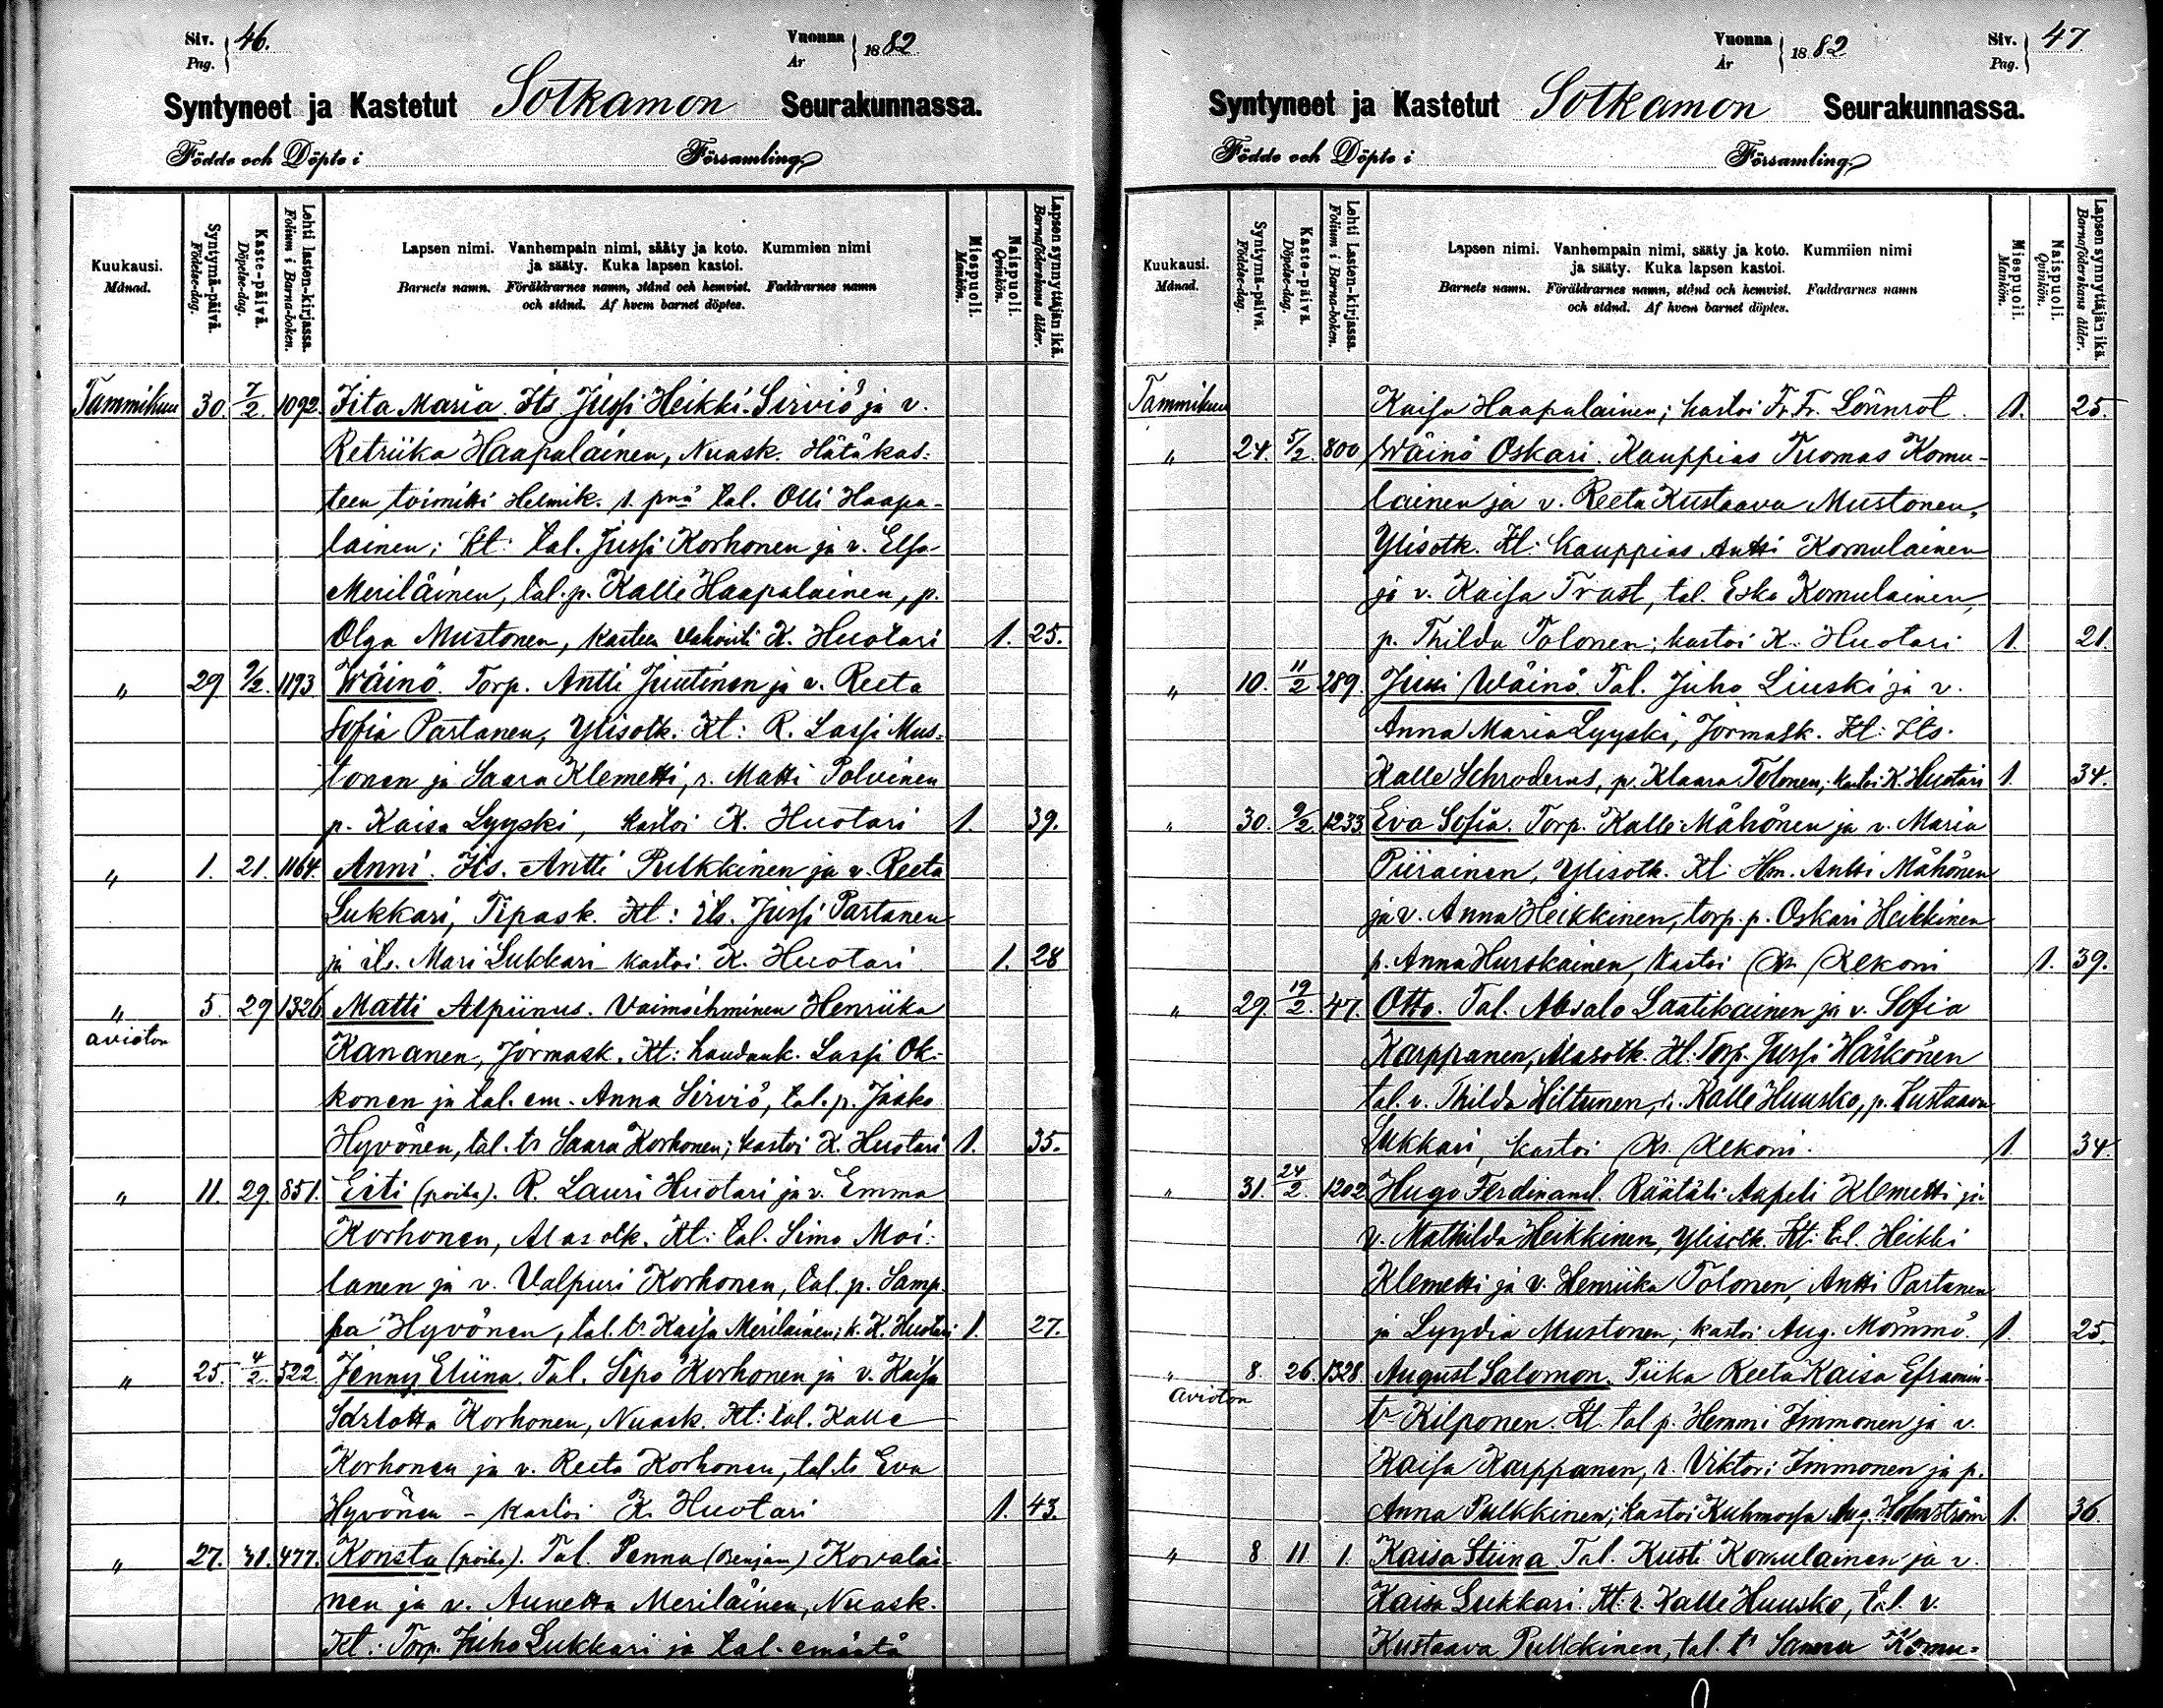 Siv. 46. Vuonna 1882
Pag. År
Syntyneet ja Kastetut Sotkamon Seurakunnassa.
Födde och Döpte i Församling.
Kuukausi. Månad.
Syntymä-päivä. Födelse-dag.
Kaste-päivä. Döpelse-dag.
Lehti lasten-kirjassa. Folium i Barna-boken.
Lapsen nimi. Vanhempain nimi, sääty ja koto. Kummien nimi
ja sääty. Kuka lapsen kastoi.
Barnets namn. Föräldrarnes namn, stånd och hemvist. Faddrarnes namn
och stånd. Af hvem barnet döptes.
Miespuoli. Mankön.
Naispuoli. Qvinkön.
Lapsen synnyttäjän ikä. Barnaföderskans ålder.
Tammikuu 30. 7/2. 1092. Iita Maria. Its Jussi Heikki Sirviö ja v.
Retriika Haapalainen, Nuask. Hätäkas-
teen toimitti Helmik. 1. pnä tal. Olli Haapa-
lainen; Kt: tal. Jussi Korhonen ja v. Elsa
Meriläinen, tal. p. Kalle Haapalainen, p.
Olga Mustonen, kasteen vahvisti K. Huotari 1. 25.
" 29 9/2. 1193 Wäinö. Torp. Antti Juutinen ja v. Reeta
Sofia Partanen, Ylisotk. Kt: R. Lassi Mus-
tonen ja Saara Klemetti, r. Matti Polvinen
p. Kaisa Lyyski, kastoi K. Huotari 1. 39.
" 1. 21. 1164. Anni. Its. Antti Pulkkinen ja v. Reeta
Lukkari, Tipask. Kt: its. Jussi Partanen
ja its. Mari Lukkari – kastoi K. Huotari 1. 28
" 5. 29 1326 Matti Alpiinus. Vaimoihminen Henriika
avioton Kananen, Jormask. Kt: laudank. Lassi Ok-
konen ja tal. em. Anna Sirviö, tal. p. Jaako
Hyvönen, tal. tr Saara Korhonen; kastoi K. Huotari 1. 35.
" 11. 29. 851. Eeti (poika). R. Lauri Huotari ja v. Emma
Korhonen, Alasotk. Kt: tal. Simo Moi-
lanen ja v. Valpuri Korhonen, tal. p. Samp-
pa Hyvönen, tal. tr. Kaisa Meriläinen; k. K. Huotari 1. 27.
" 25. 4/2. 522. Jenny Eliina. Tal. Sepo Korhonen ja v. Kaisa
Sarlotta Korhonen, Nuask. Kt: tal. Kalle
Korhonen ja v. Reeta Korhonen, tal. tr Eva
Hyvönen – kastoi K. Huotari 1. 43.
" 27. 31. 477. Konsta (poika). Tal. Penna (Benjam) Kovalai-
nen ja v. Aunetta Meriläinen, Nuask.
Kt: Torp. Juho Lukkari ja tal. emäntä
Vuonna 1882 Siv. 47
År Pag.
Syntyneet ja Kastetut Sotkamon Seurakunnassa.
Födde och Döpte i Församling.
Kuukausi. Månad.
Syntymä-päivä. Födelse-dag.
Kaste-päivä. Döpelse-dag.
Lehti Lasten-kirjassa. Folium i Barna-boken.
Lapsen nimi. Vanhempain nimi, sääty ja koto. Kummien nimi
ja sääty. Kuka lapsen kastoi.
Barnets namn. Föräldrarnes namn, stånd och hemvist. Faddrarnes namn
och stånd. Af hvem barnet döptes.
Miespuoli. Mankön.
Naispuoli. Qvinkön.
Lapsen synnyttäjän ikä. Barnaföderskans ålder.
Tammikuu Kaisa Haapalainen; kastoi Fr. Fr. Lönnrot. 1. 25.
" 24. 5/2. 800 Wäinö Oskari. Kauppias Tuomas Komu-
lainen ja v. Reeta Kustaava Mustonen,
Ylisotk. Kt: kauppias Antti Komulainen
ja v. Kaisa Trast, tal. Esko Komulainen,
p. Thilda Tolonen; kastoi K. Huotari 1. 21.
" 10. 11/2 289. Jussi Wäinö. Tal. Juho Liuski ja v.
Anna Maria Lyyski, Jormask. Kt: Its.
Kalle Schroderus, p. Klaara Tolonen; kastoi K. Huotari 1. 34.
" 30. 9/2. 1233 Eva Sofia. Torp. Kalle Mähönen ja v. Maria
Piirainen, Ylisotk. Kt: Hm. Antti Mähönen
ja v. Anna Heikkinen, torp. p. Oskari Heikkinen
p. Anna Hurskainen, kastoi Kr. Rekoni 1. 39.
" 29. 19/2. 47. Otto. Tal. Absalo Laatikainen ja v. Sofia
Karppanen, Alasotk. Kt: Torp. Jussi Härkönen
tal. v. Thilda Hiltunen, r. Kalle Huusko, p. Kustaava
Lukkari, kastoi Kr. Rekoni. 1 34.
" 31. 24/2. 1202 Hugo Ferdinand. Räätäli Aapeli Klemetti ja
v. Mathilda Heikkinen, Ylisotk. Kt: tal. Heikki
Klemetti ja v. Henriika Tolonen, Antti Partanen
ja Lyydia Mustonen; kastoi Aug. Mömmö 1. 25.
" 8. 26. 1328. August Salomon. Piika Reeta Kaisa Efraimin-
avioton tr Kilponen. Kt. tal p. Hemmi Immonen ja v.
Kaisa Karppanen, r. Viktori Immonen ja p.
Anna Pulkkinen; kastoi Kuhmossa Aug. Holmström 1. 36.
" 8. 11 1. Kaisa Stiina Tal. Kusti Komulainen ja v.
Kaisa Lukkari. Kt: r. Kalle Huusko, tal. v.
Kustaava Pulkkinen, tal. tr Sanna Komu-